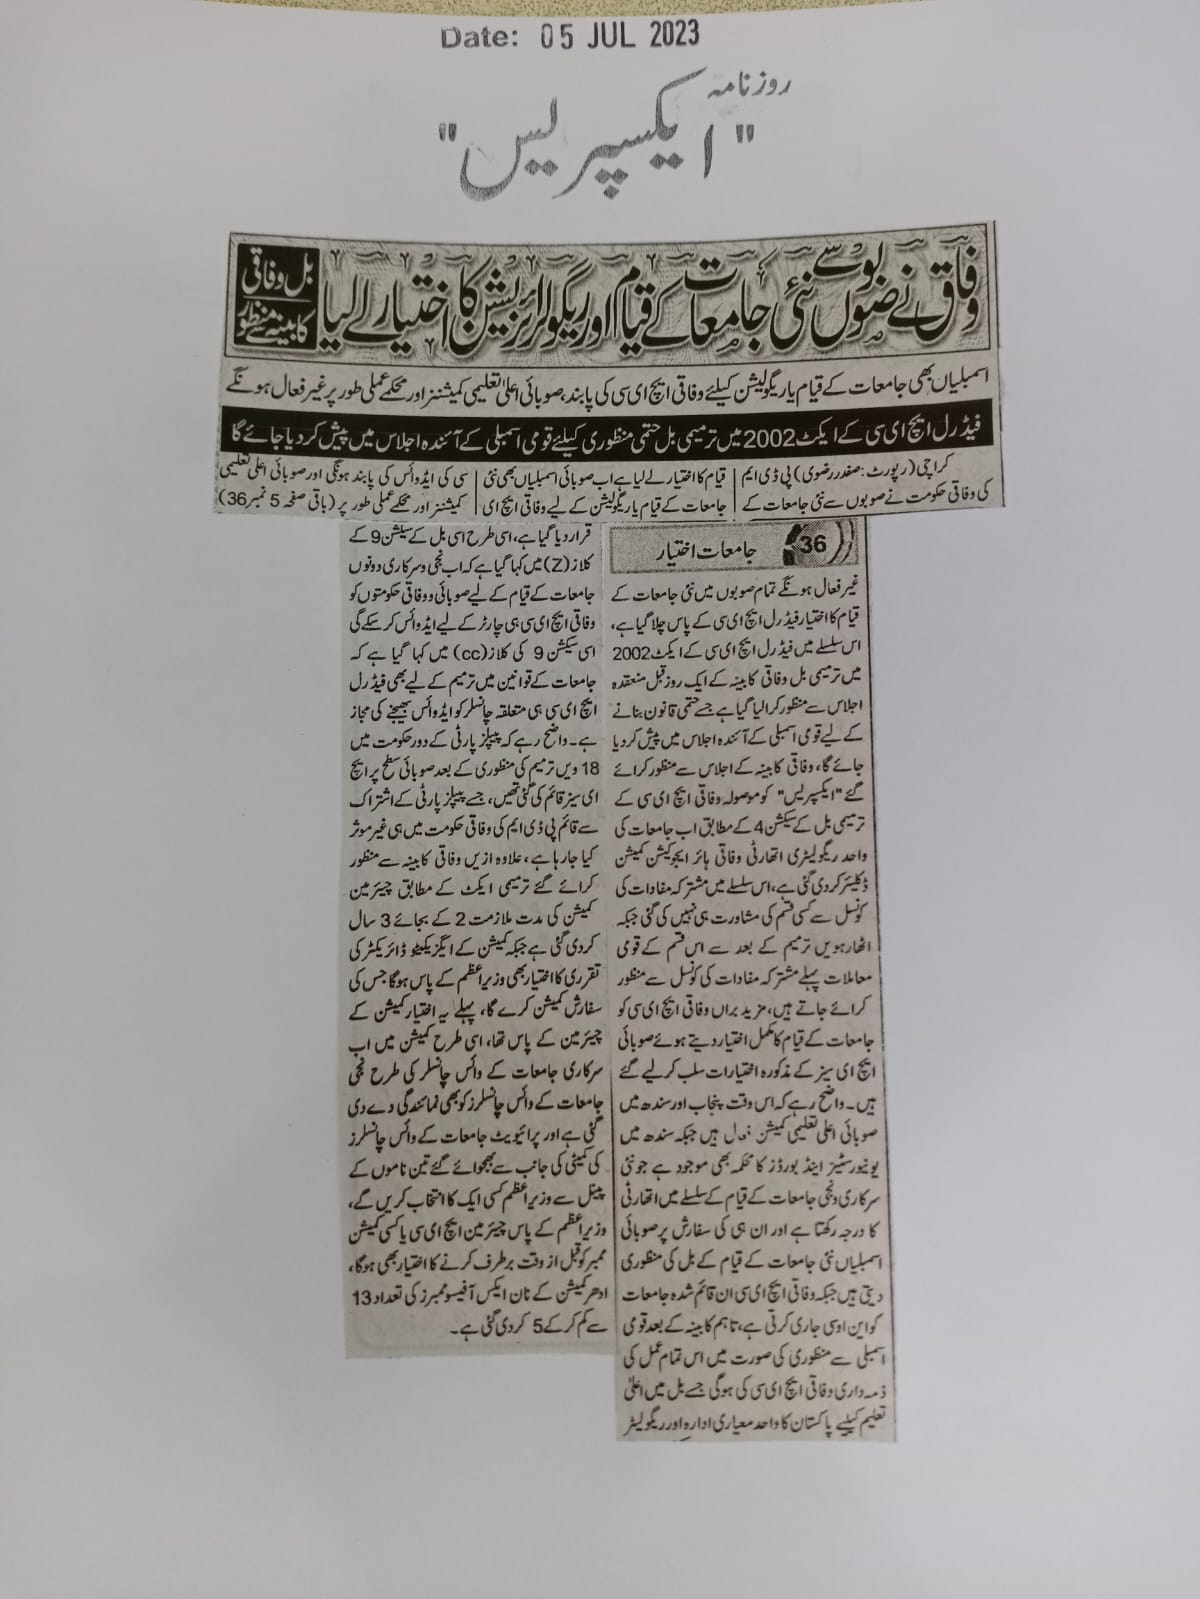 Date: 05 JUL 2023
روزنامہ
"ایکسپریس"
وفاق نے صوبوں سے نئی جامعات کے قیام اور ریگولرائزیشن کا اختیار لے لیا
بل وفاقی
کابینہ سے منظور
اسمبلیاں بھی جامعات کے قیام یا ریگولیشن کیلئے وفاقی ایچ ای سی کی پابند، صوبائی اعلیٰ تعلیمی کمیشنز اور محکمے عملی طور پر غیر فعال ہونگے
فیڈرل ایچ ای سی کے ایکٹ 2002 میں ترمیمی بل حتمی منظوری کیلئے قومی اسمبلی کے آئندہ اجلاس میں پیش کردیا جائے گا
کراچی (رپورٹ: صفدر رضوی) پی ڈی ایم
کی وفاقی حکومت نے صوبوں سے نئی جامعات کے
قیام کا اختیار لے لیا ہے اب صوبائی اسمبلیاں بھی نئی
جامعات کے قیام یا ریگولیشن کے لیے وفاقی ایچ ای
سی کی ایڈوائس کی پابند ہونگی اور صوبائی اعلی تعلیمی
کمیشنز اور محکمے عملی طور پر (باقی صفحہ 5 نمبر 36)
36 جامعات اختیار
غیر فعال ہونگے تمام صوبوں میں نئی جامعات کے
قیام کا اختیار فیڈرل ایچ ای سی کے پاس چلا گیا ہے،
اس سلسلے میں فیڈرل ایچ ای سی کے ایکٹ 2002
میں ترمیمی بل وفاقی کابینہ کے ایک روز قبل منعقدہ
اجلاس سے منظور کرالیا گیا ہے جسے حتمی قانون بنانے
کے لیے قومی اسمبلی کے آئندہ اجلاس میں پیش کردیا
جائے گا، وفاقی کابینہ کے اجلاس سے منظور کرائے
گئے "ایکسپریس" کو موصولہ وفاقی ایچ ای سی کے
ترمیمی بل کے سیکشن 4 کے مطابق اب جامعات کی
واحد ریگولیٹری اتھارٹی وفاقی ہائر ایجوکیشن کمیشن
ڈکلیئر کردی گئی ہے، اس سلسلے میں مشترکہ مفادات کی
کونسل سے کسی قسم کی مشاورت ہی نہیں کی گئی جبکہ
اٹھارہویں ترمیم کے بعد سے اس قسم کے قومی
معاملات پہلے مشترکہ مفادات کی کونسل سے منظور
کرائے جاتے ہیں، مزید براں وفاقی ایچ ای سی کو
جامعات کے قیام کا مکمل اختیار دیتے ہوئے صوبائی
ایچ ای سیز کے مذکورہ اختیارات سلب کرلیے گئے
ہیں۔ واضح رہے کہ اس وقت پنجاب اور سندھ میں
صوبائی اعلی تعلیمی کمیشن فعال ہیں جبکہ سندھ میں
یونیورسٹیز اینڈ بورڈز کا محکمہ بھی موجود ہے جو نئی
سرکاری و نجی جامعات کے قیام کے سلسلے میں اتھارٹی
کا درجہ رکھتا ہے اور ان ہی کی سفارش پر صوبائی
اسمبلیاں نئی جامعات کے قیام کے بل کی منظوری
دیتی ہیں جبکہ وفاقی ایچ ای سی ان قائم شدہ جامعات
کو این او سی جاری کرتی ہے، تاہم کابینہ کے بعد قومی
اسمبلی سے منظوری کی صورت میں اس تمام عمل کی
ذمہ داری وفاقی ایچ ای سی کی ہوگی جسے بل میں اعلیٰ
تعلیم کیلیے پاکستان کا واحد معیاری ادارہ اور ریگولیٹر
قرار دیا گیا ہے، اسی طرح اسی بل کے سیکشن 9 کے
کلاز (Z) میں کہا گیا ہے کہ اب نجی و سرکاری دونوں
جامعات کے قیام کے لیے صوبائی و وفاقی حکومتوں کو
وفاقی ایچ ای سی ہی چارٹر کے لیے ایڈوائس کرسکے گی
اسی سیکشن 9 کی کلاز (cc) میں کہا گیا ہے کہ
جامعات کے قوانین میں ترمیم کے لیے بھی فیڈرل
ایچ ای سی ہی متعلقہ چانسلر کو ایڈوائس بھیجنے کی مجاز
ہے۔ واضح رہے کہ پیپلز پارٹی کے دور حکومت میں
18 ویں ترمیم کی منظوری کے بعد صوبائی سطح پر ایچ
ای سیز قائم کی گئی تھیں، جسے پیپلز پارٹی کے اشتراک
سے قائم پی ڈی ایم کی وفاقی حکومت میں ہی غیر موثر
کیا جارہا ہے، علاوہ ازیں وفاقی کابینہ سے منظور
کرائے گئے ترمیمی ایکٹ کے مطابق چیئرمین
کمیشن کی مدت ملازمت 2 کے بجائے 3 سال
کردی گئی ہے جبکہ کمیشن کے ایگزیکیٹو ڈائریکٹر کی
تقرری کا اختیار بھی وزیر اعظم کے پاس ہوگا جس کی
سفارش کمیشن کرے گا، پہلے یہ اختیار کمیشن کے
چیئرمین کے پاس تھا، اسی طرح کمیشن میں اب
سرکاری جامعات کے وائس چانسلر کی طرح نجی
جامعات کے وائس چانسلرز کو بھی نمائندگی دے دی
گئی ہے اور پرائیویٹ جامعات کے وائس چانسلرز
کی کمیٹی کی جانب سے بھجوائے گئے تین ناموں کے
پینل سے وزیر اعظم کسی ایک کا انتخاب کریں گے،
وزیر اعظم کے پاس چیئرمین ایچ ای سی یا کسی کمیشن
ممبر کو قبل از وقت برطرف کرنے کا اختیار بھی ہوگا،
ادھر کمیشن کے نان ایکس آفیسو ممبرز کی تعداد 13
سے کم کرکے 5 کردی گئی ہے۔